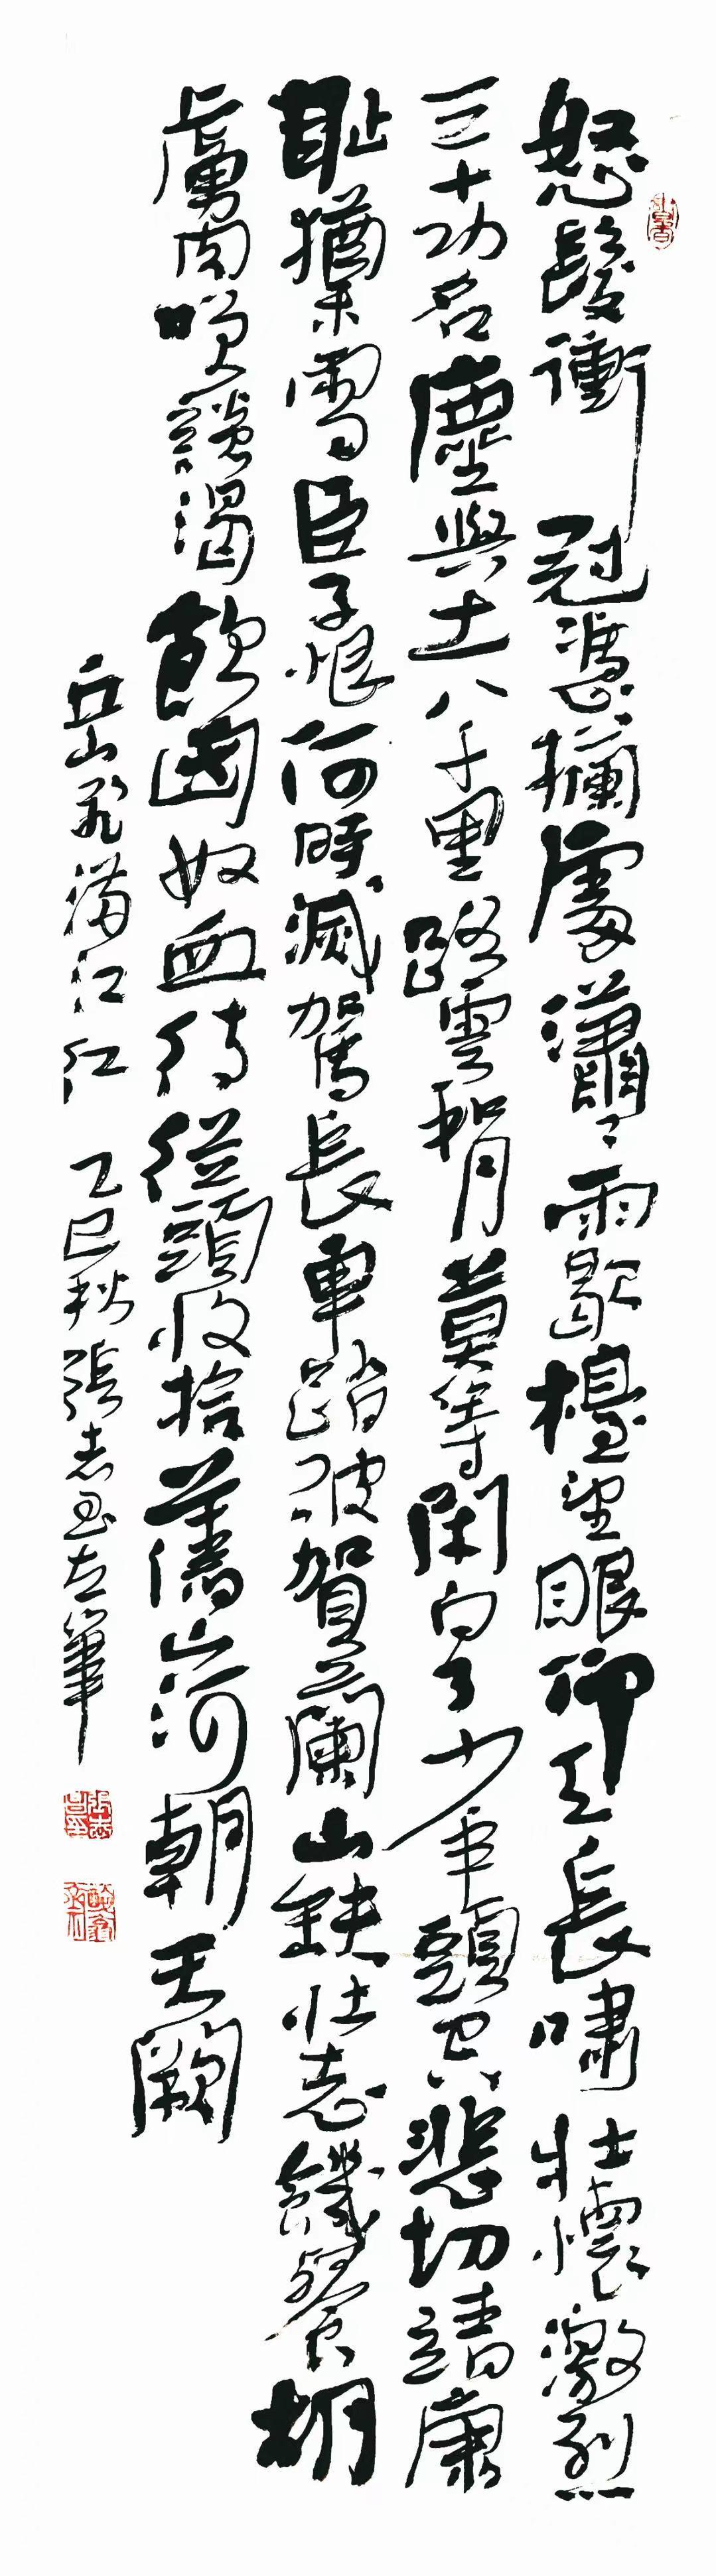 怒髮衝冠憑欄處瀟々雨歇檯望眼仰天長嘯壯懷激烈
三十功名塵與土八千里路雲和月莫等閑白了少年頭空悲切靖康
耻猶未雪臣子恨何時滅駕長車踏破賀蘭山缺壯志饑餐胡
虜肉笑談渴飲匈奴血待從頭收拾舊山河朝天闕
岳飛滿江紅 乙巳秋張志昌左筆